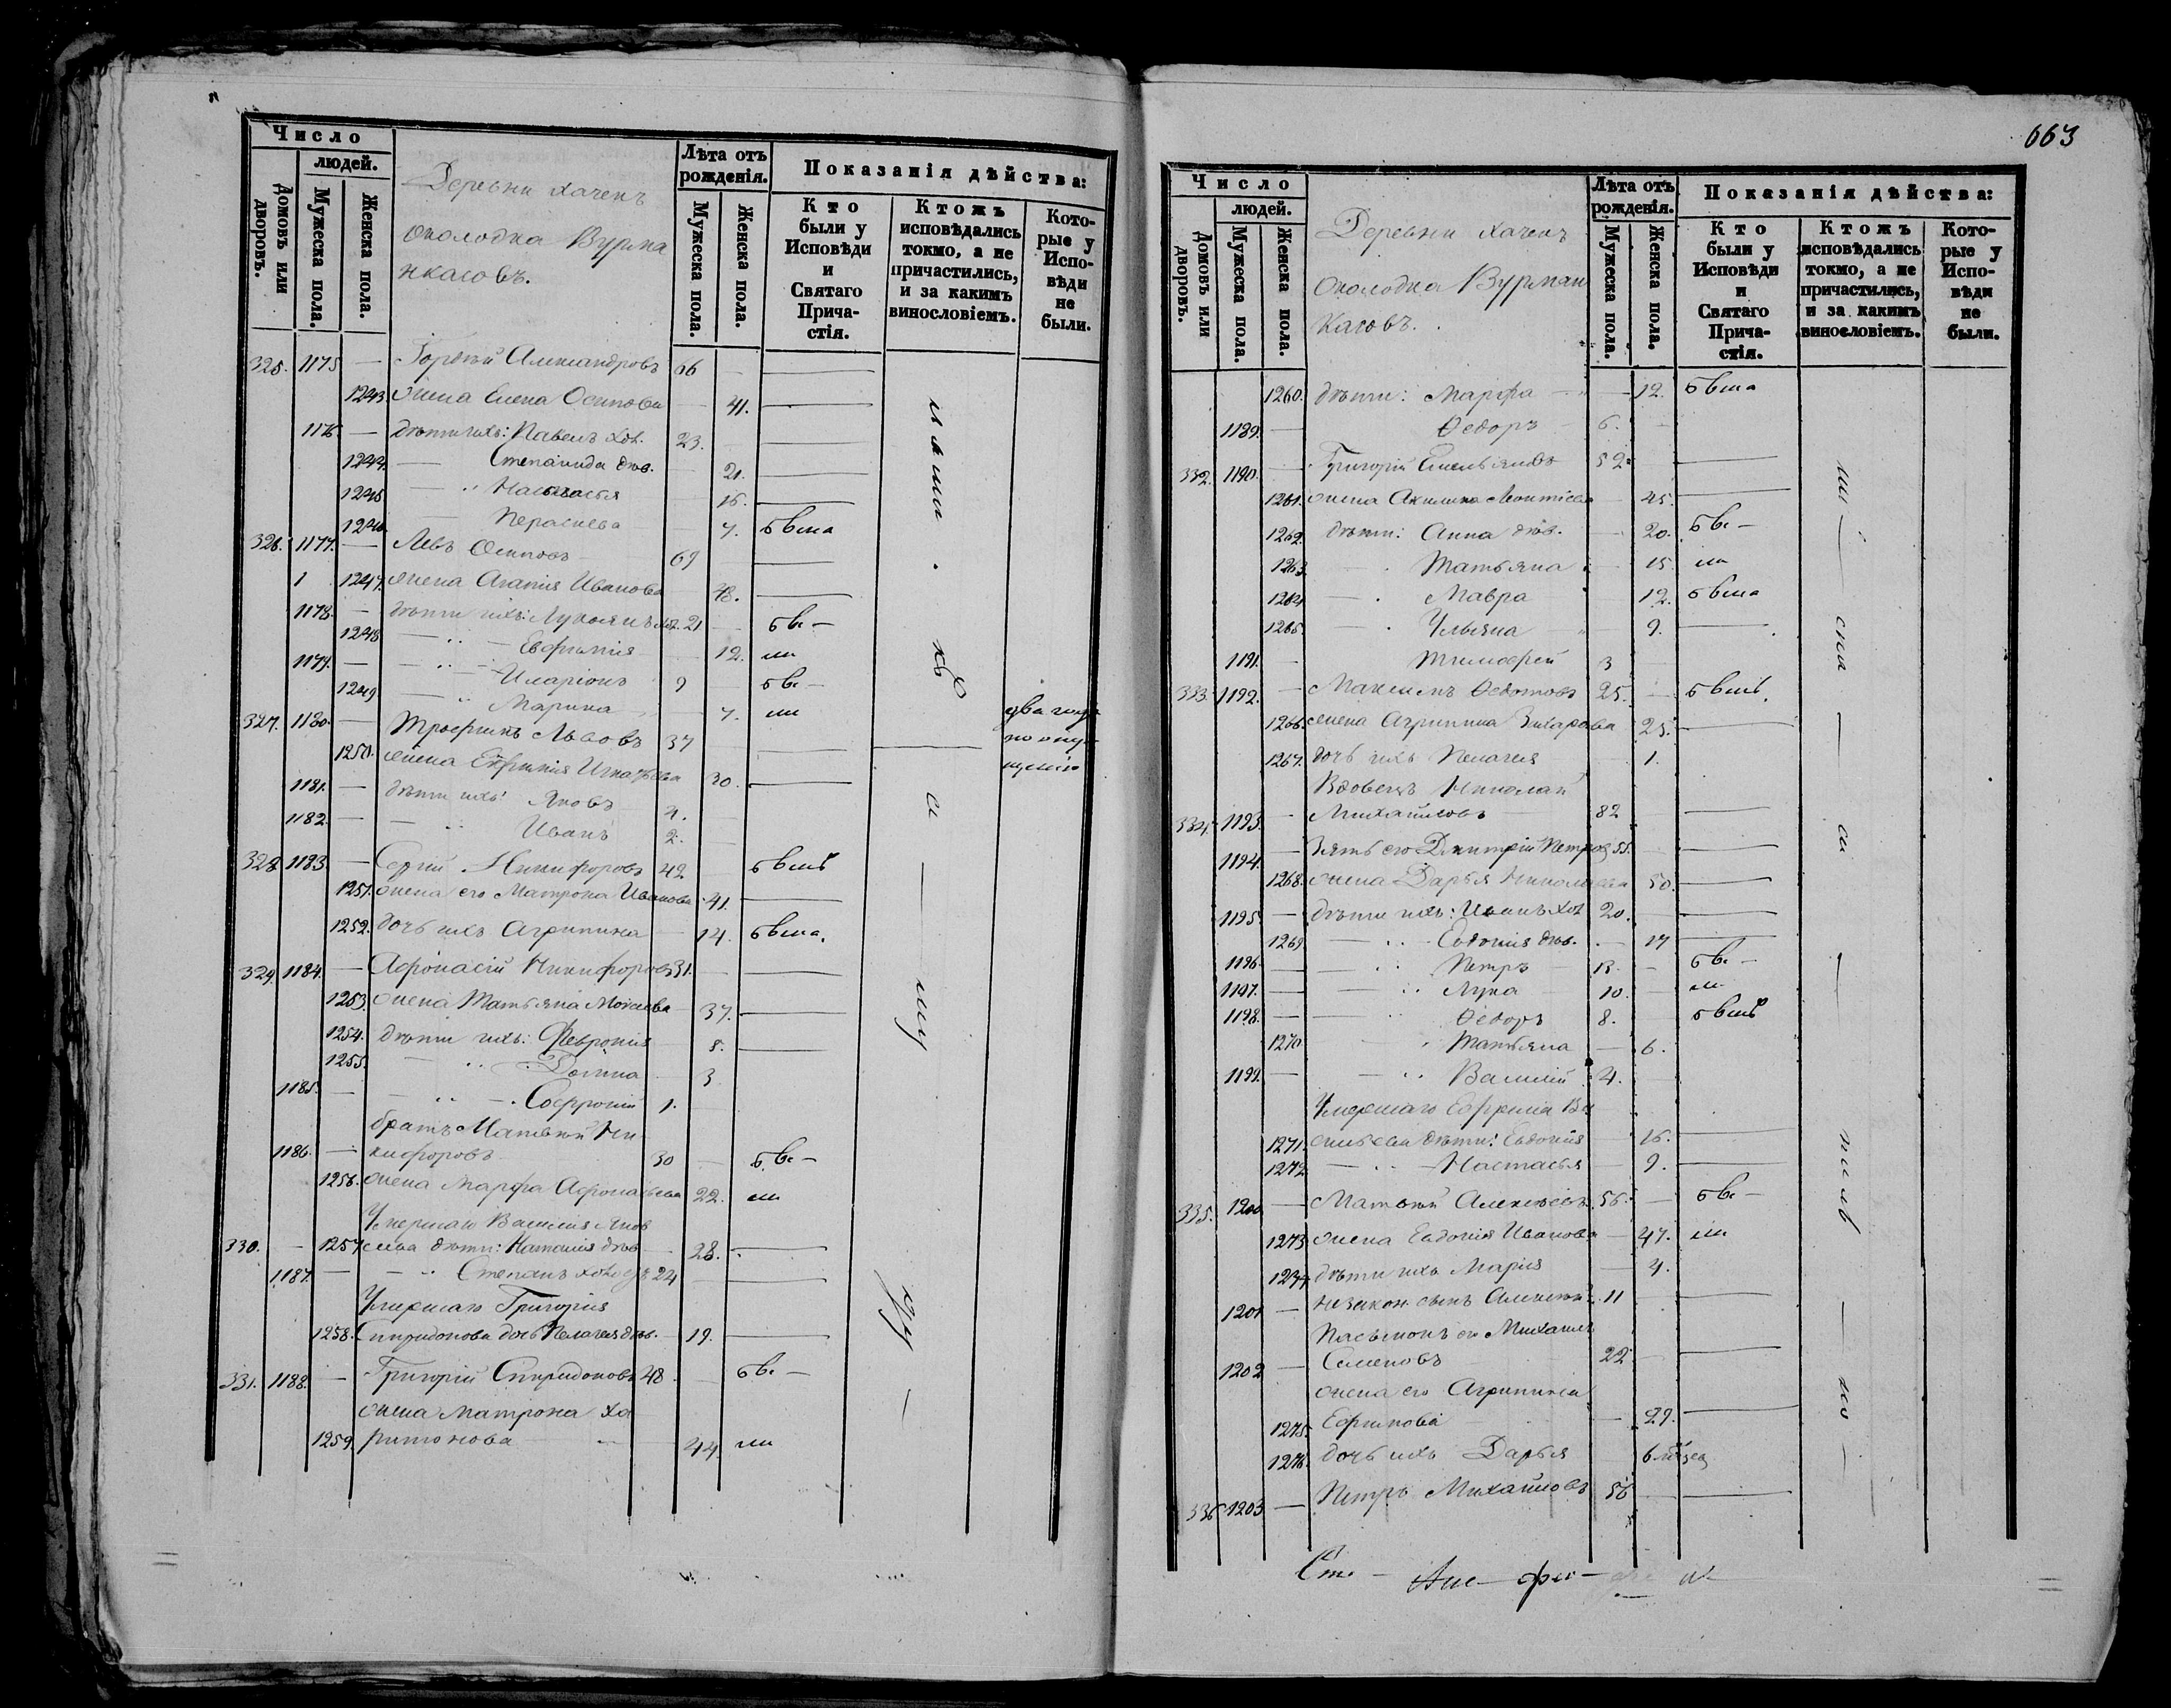 Число
людей.
Домовъ или дворовъ.
Мужеска пола.
Женска пола.
Деревни Хачекъ
околодка Вурма
нкасовъ.
Лѣта отъ рожденія.
Мужеска пола.
Женска пола.
Показанія дѣйства:
Кто были у Исповѣди и Святаго Прича-стія.
Ктожъ исповѣдались токмо, а не причастились, и за какимъ винословіемъ.
Кото-рые у Испо-вѣди не были.
325. 1175 — Гордѣй Александровъ 66 —
1243 жена Елена Осипова 41.
1176. — дѣти ихъ: Павелъ хол. 23.
1244. — Степанида дѣв. 21.
1245 — Настасья 16.
1246 — Параскева 7. бвша
326. 1177. — Левъ Осиповъ 69
1 1247. жена Агапія Иванова 48.
1178. — дѣти ихъ: Лукоянъ хол. 21 бв. —
1248 — Евфимія 12. ши
1179. — Иларіонъ 9 бв. —
1249 — Марина 7. ши
327. 1180. — Трофимъ Львовъ 37
1250. жена Евфимія Игнатьева 30.
1181. — дѣти ихъ: Яковъ 4.
1182. — Иванъ 2.
два года
по опу
щенію
328 1183. — Сергѣй Никифоровъ 42 бвшъ
1251. жена его Матрона Иванова 41.
1252. дочь ихъ Агрипина 14. бвша.
329. 1184. — Афонасій Никифоровъ 31.
1253. жена Татьяна Моисеева 37.
1254. дѣти ихъ: Февронія 8.
1255. — Домна 3
1185. — Софроній 1.
братъ Матвѣй Ни
1186. — кифоровъ 30 — бв. —
1256. жена Марфа Афонасьева 22. ши
Умершаго Василія Яков
330. — 1257 лева дѣти: Наталія дѣв. 28.
1187. — Степанъ хол. 24
Умершаго Григорія
1258. Спиридонова дочь Пелагея дѣв. 19.
331. 1188. — Григорій Спиридоновъ 48 бв. —
жена Матрона Ха
1259. ритонова 44. ши
663
Число
людей.
Домовъ или дворовъ.
Мужеска пола.
Женска пола.
Деревни Хачекъ
околодка Вурман
касовъ.
Лѣта отъ рожденія.
Мужеска пола.
Женска пола.
Показанія дѣйства:
Кто были у Исповѣди и Святаго Прича-стія.
Ктожъ исповѣдались токмо, а не причастились, и за какимъ винословіемъ.
Кото-рые у Испо-вѣди не были.
1260. дѣти: Марфа — 12. бвша
1189. — Ѳедоръ 6.
332. 1190. Григорій Емельяновъ 52.
1261. жена Акилина 45.
1262. дѣти: Анна дѣв. 20. бв. —
1263. Татьяна 15 ши
1264 — Мавра 12. бвша
1265. Ульяна — 9.
1191. — Тимофей 3
333. 1192. — Максимъ Ѳедотовъ 25. — бвшъ.
1266. жена Агрипина Захарова 25.
1267. дочь ихъ Пелагея 1.
Вдовецъ Николай
334. 1193. — Михайловъ 82
1194. Зять его Дмитрій Петровъ 55.
1268. жена Дарья Николаева 50.
1195 — дѣти ихъ: Иванъ хол. 20.
1269 — Евдокія дѣв. — 17
1196. — Петръ 13. — бв. —
1197. — Лука 10. ши
1198. — Ѳедоръ 8. бвшъ
1270 Татьяна — 6.
1199. — Василій 4.
Умершаго Ефрема Ва
1271. сильева дѣти: Евдокія 16.
1272. — Настасья 9.
335. 1200 — Матвѣй Алексѣевъ 56. — бв. —
1273 жена Евдокія Иванова — 47. ши
1274 дѣти ихъ Марія 4.
1201 — Незакон. сынъ Алексѣй 11
Пасынокъ его Михаилъ
1202 — Семеновъ 22
жена его Агрипина
1275. Ефимова — 29.
1276. дочь ихъ Дарья 6 мѣсяц
336 1203. — Петръ Михайловъ 56